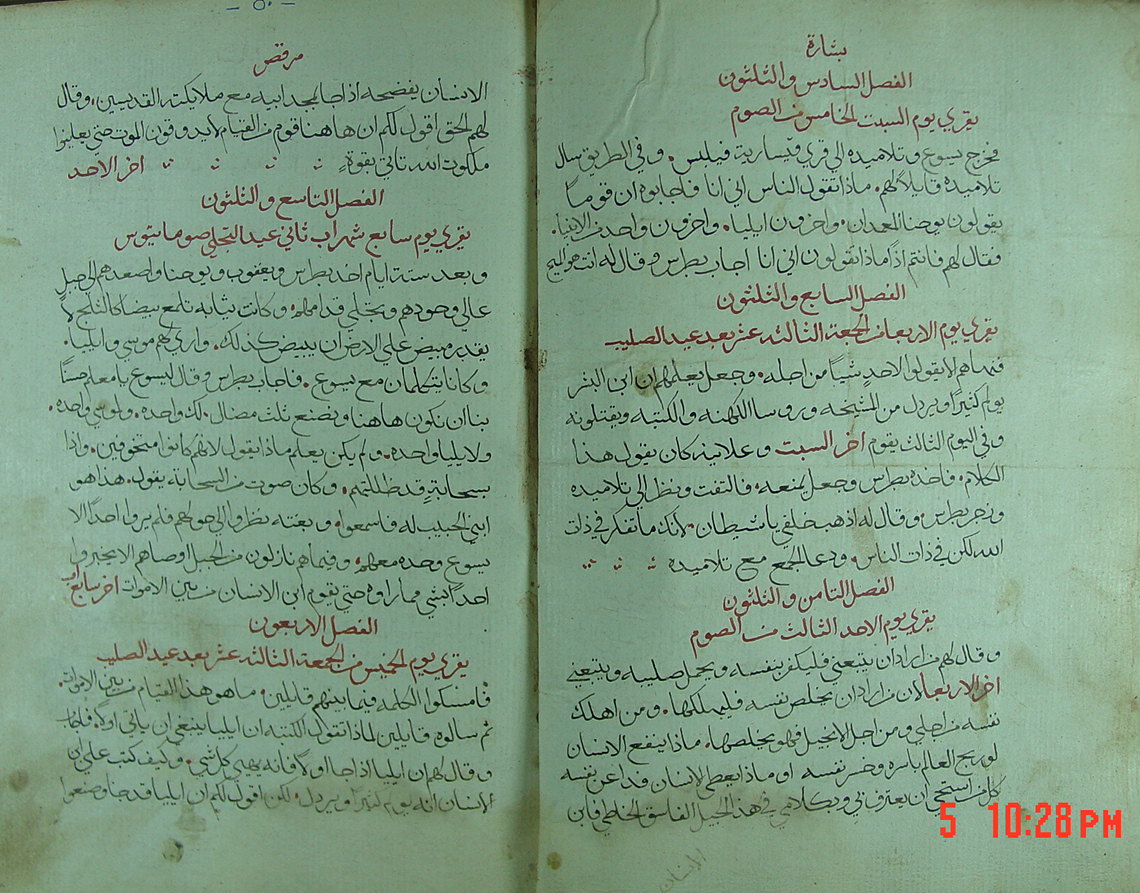 بشارة
الفصل السادس والثلثون
يقري يوم السبت الخامس من الصوم
فخرج يسوع وتلاميذه الي قري قيسارية فيلبس. وفي الطريق سال
تلاميذه قايلاً لهم. ماذا تقول الناس اني انا فاجابوه ان قوماً
يقولون يوحنا المعمدان. واخرون ايليا. واخرون واحد من الانبياء.
فقال لهم فانتم اذاً ماذا تقولون اني انا اجاب بطرس وقال له انت هو المسيح
الفصل السابع والثلثون
يقري يوم الاربعا من الجمعة الثالثه عشر بعد عيد الصليب
فنهاهم الا يقولوا لاحدٍ شيئاً من اجله. وجعل يعلمهم ان ابن البشر
يولم كثيراً ويرذل من المشيخه وروسا الكهنه والكتبه ويقتلونه
وفي اليوم الثالث يقوم اخر السبت وعلانية كان يقول هذا
الكلام. فاخذه بطرس وجعل يمنعه. فالتفت ونظر الي تلاميذه
وزجر بطرس. وقال له اذهب خلفي يا شيطان. لانك ما تفكر في ذات
الله لكن في ذات الناس. ودعا الجمع مع تلاميذه
الفصل الثامن والثلثون
يقري يوم الاحد الثالث من الصوم
وقال لهم من اراد ان يتبعني فليكفر بنفسه ويحمل صليبه ويتبعني
اخر الاربعا لان من اراد ان يخلص نفسه فليهلكها. ومن اهلك
نفسه من اجلي ومن اجل الانجيل فهو يخلصها. ماذا ينفع الانسان
لو ربح العالم باسره وخسر نفسه او ماذا يعطي الانسان فدا عن نفسه
كل من استحي ان يعترف بي وبكلامي في هذا الجيل الفاسق الخاطي فابن
الانسان
مرقص
الانسان يفضحه اذا جا لمجد ابيه مع ملايكته القديسين. وقال
لهم الحق اقول لكم ان هاهنا قوم من القيام لا يذوقون الموت حتي يعاينوا
ملكوت الله تاتي بقوةٍ اخر الاحد
الفصل التاسع والثلثون
يقري يوم سابع شهر اب ثاني عيد التجلي
وبعد ستة ايام اخذ بطرس ويعقوب ويوحنا واصعدهم الي جبلٍ
عالي وحدهم وتجلي قدامهم. وكانت ثيابه تلمع بيضا كالثلج لا
يقدر مبيض علي الارض ان يبيض كذلك. واري لهم موسي وايليا.
وكانا يتكلمان مع يسوع. فاجاب بطرس وقال ليسوع يا معلم حسناً
بنا ان نكون هاهنا ونصنع ثلث مضال. لك واحده. ولموسي واحده.
ولايليا واحده. ولم يكن يعلم ماذا يقول لانهم كانوا متخوفين. واذا
بسحابةٍ قد ظللتهم. وكان صوت من السحابة يقول. هذا هو
ابني الحبيب له فاسمعوا. وبغتة نظروا الي حولهم فلم يروا احداً الا
يسوع وحده معهم. وفيما هم نازلون من الجبل وصاهم الا يخبروا
احداً بشي مما راوه حتي يقوم ابن الانسان من بين الاموات اخر سابع اب
الفصل الاربعون
يقري يوم الخميس من الجمعة الثالثه عشر بعد عيد الصليب
فامسكوا الكلمه فيما بينهم قايلين. ما هو هذا القيام من بين الاموات
ثم سالوه قايلين لماذا تقول الكتبه ان ايليا ينبغي ان ياتي اولاً. فاجاب
وقال لهم ان ايليا اذا جا اولاً فانه يهيي كل شي. وكيف كتب علي ابن
الانسان انه يولم كثيراً ويرذل. لكن اقول لكم ان ايليا قد جا وصنعوا
5 10:28 PM